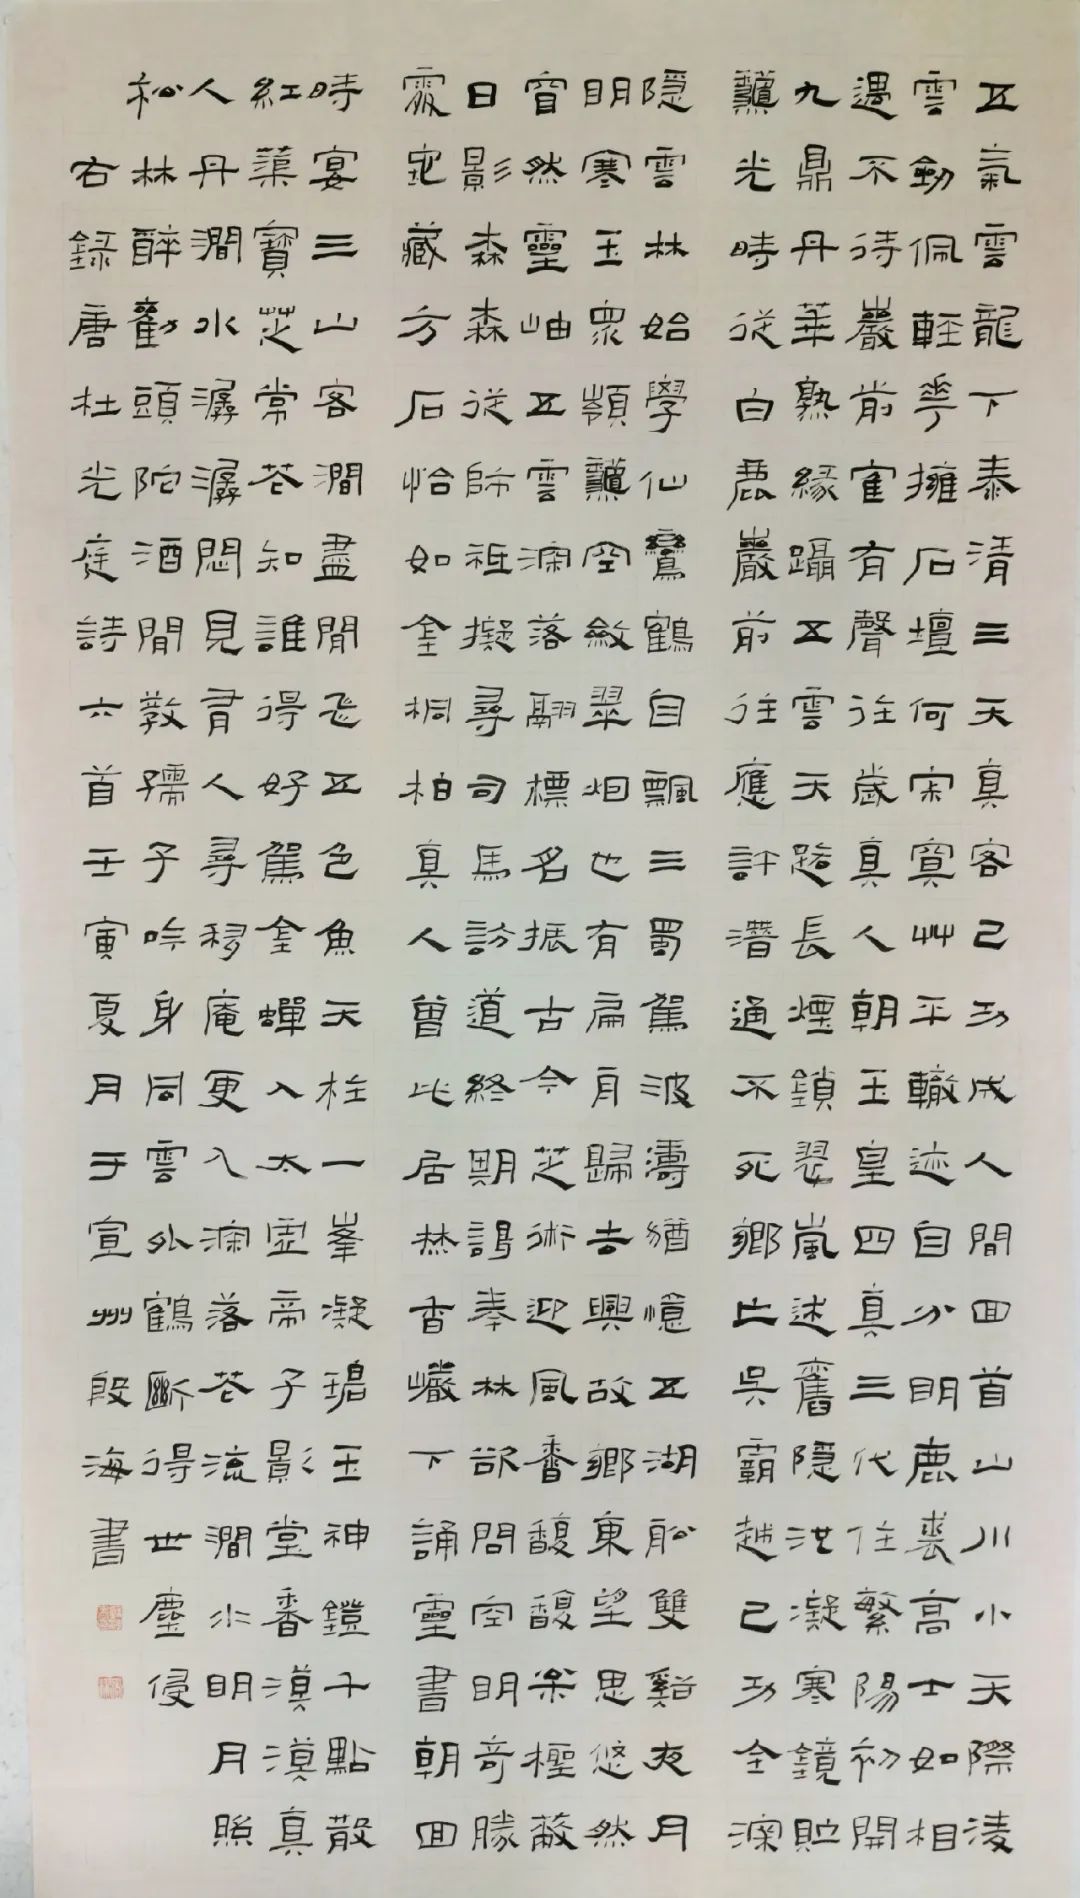 五氣雲龍下泰清三天真客已功成人間回首山川小天際凌
雲劍佩輕花擁石壇何寂寞艸平轍迹自分明鹿裘高士如相
遇不待巖前寉有聲往歲真人朝玉皇四真三代住繁陽初開
九鼎丹華熟緣躡五雲天路長煙鎖翠嵐迷舊隱池凝寒鏡貯
龝光時從白鹿巖前往應許潛通不死鄉亡吳霸越已功全深
隱雲林始學仙鸞鶴自飄三蜀駕波濤猶憶五湖舩雙谿夜月
明寒玉衆嶺龝空斂翠烟也有扁舟歸去興故鄉東望思悠然
窅然靈岫五雲深落翮標名振古今芝術迎風香馥馥松檉蔽
日影森森從師祗擬尋司馬訪道終期謁奉林欲問空明奇勝
處宓藏方石恰如金桐柏真人曾此居焚香巘下誦靈書朝回
時宴三山客澗盡閒飛五色魚天柱一峯凝碧玉神鐙千點散
紅蕖寶芝常花知誰得好駕金蟬入太虛帝子影堂香漠漠真
人丹澗水潺潺悶見有人尋移庵更入深落花流澗水明月照
松林醉勸頭陀酒閒教孺子吟身同雲外鶴斷得世塵侵
右錄唐杜光庭詩六首壬寅夏月于宣州段海書